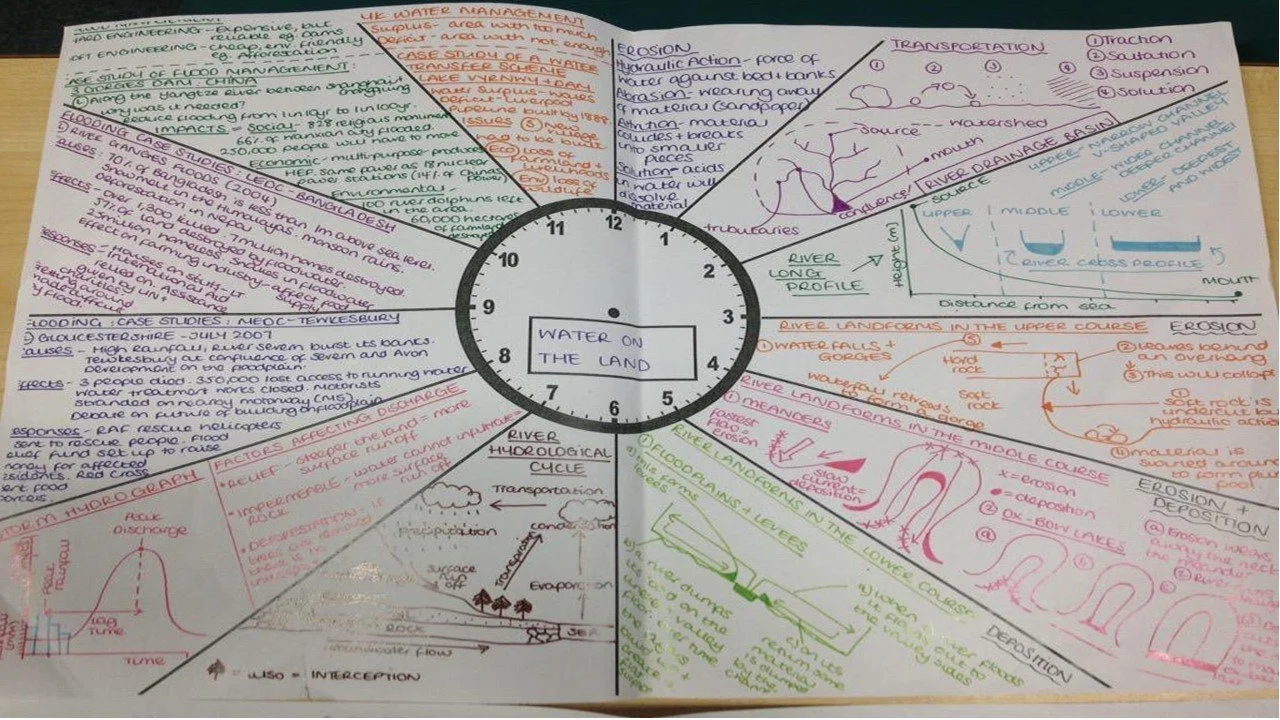 WATER ON
THE LAND
12
1
2
3
4
5
6
7
8
9
10
11
EROSION
Hydraulic Action - force of
water against bed + banks
Abrasion - wearing away
of material (sandpaper)
Attrition - material
collides + breaks
into smaller
pieces
Solution - acids
in water will
dissolve
material
TRANSPORTATION
① Traction
② Saltation
③ Suspension
④ Solution
① ② ③ ④
Source
watershed
mouth
confluence
tributaries
RIVER DRAINAGE BASIN
UPPER - NARROW CHANNEL
V-SHAPED VALLEY
MIDDLE - WIDER CHANNEL
DEEPER CHANNEL
LOWER - DEEPEST
AND WIDEST
SOURCE
UPPER MIDDLE LOWER
RIVER CROSS PROFILE
MOUTH
Height (m)
Distance from sea
RIVER
LONG
PROFILE
RIVER LANDFORMS IN THE UPPER COURSE
EROSION
① WATERFALLS +
GORGES
Hard
rock
Soft
rock
② Leaves behind
an overhang
③ This will collapse
① Soft rock is
undercut by
hydraulic action
④ material is
swirled around
to form plunge
pool
⑤
waterfall retreats
to form a gorge
RIVER LANDFORMS IN THE MIDDLE COURSE
EROSION +
DEPOSITION
① MEANDERS
fastest
flow =
erosion
slow
current =
deposition
x = erosion
= deposition
② OX-BOW LAKES
ⓐ Erosion wears
away the neck
the meander
RIVER LANDFORMS IN THE LOWER COURSE
DEPOSITION
① FLOODPLAINS + LEVEES
river dumps
on the
valley
over time
c) on its
return
material
is dumped
by the
channel
d) when
it floods
out to
the valley sides
RIVER
HYDROLOGICAL
CYCLE
Transportation
precipitation
condensation
Transpiration
Evaporation
Surface
run off
ROCK
SEA
Groundwater flow
= ALSO = INTERCEPTION
FACTORS AFFECTING DISCHARGE
• RELIEF - steeper the land = more
surface runoff
• IMPERMEABLE - water cannot infiltrate
ROCK more surface
run off
• DEFORESTATION - if
trees are removed
there is no
STORM HYDROGRAPH
Peak
Discharge
Peak
rainfall
Lag
Time
Time
FLOODING: CASE STUDIES: MEDC - TEWKESBURY
① GLOUCESTERSHIRE - JULY 2007
Causes - High Rainfall, River Severn burst its banks.
Tewkesbury at confluence of Severn and Avon
Development on the floodplain.
Effects - 3 people died. 350,000 lost access to running water
Water treatment works closed. Motorists
stranded on nearby motorway (M5)
Debate on future of building on floodplain
Responses - RAF rescue helicopters
sent to rescue people. Flood
relief fund set up to raise
money for affected
residents. Red Cross
sent food
parcels
FLOODING CASE STUDIES: LEDC - BANGLADESH
① RIVER GANGES FLOODS (2004)
Causes: 70% of Bangladesh is less than 1m above sea level.
snowmelt in the Himalayas. monsoon rains.
deforestation in Nepal
Effects - Over 1,200 killed. 7 million homes destroyed.
37% of land destroyed by floodwater
25 million homeless.
effect on farms + industry
CASE STUDY OF FLOOD MANAGEMENT:
3 GORGES DAM: CHINA
HARD ENGINEERING - Expensive, but
reliable eg. Dams
SOFT ENGINEERING - cheap, env. friendly
eg. Afforestation
① Along the Yangtze River between Shanghai
Chongqing
Why was it needed?
Reduce flooding from 1 in 10yr to 1 in 100yr.
IMPACTS = Social - 828 religious monuments
66% of Wanxian city flooded.
250,000 people will have to move
Economic - multi-purpose - produces
HEP, same power as 18 nuclear
power stations (14% of China's
power)
Environmental -
100 river dolphins left
in the area
60,000 hectares
of farmland
destroyed
UK WATER MANAGEMENT
Surplus - area with too much
Deficit - area with not enough
CASE STUDY OF A WATER
TRANSFER SCHEME
LAKE VYRNWY + DAM
Water Surplus - Wales
Deficit - Liverpool
Pipeline built by 1888
ISSUES
village
had to be built
(Eco) loss of
farmland +
livelihoods
(Env) loss of
wildlife